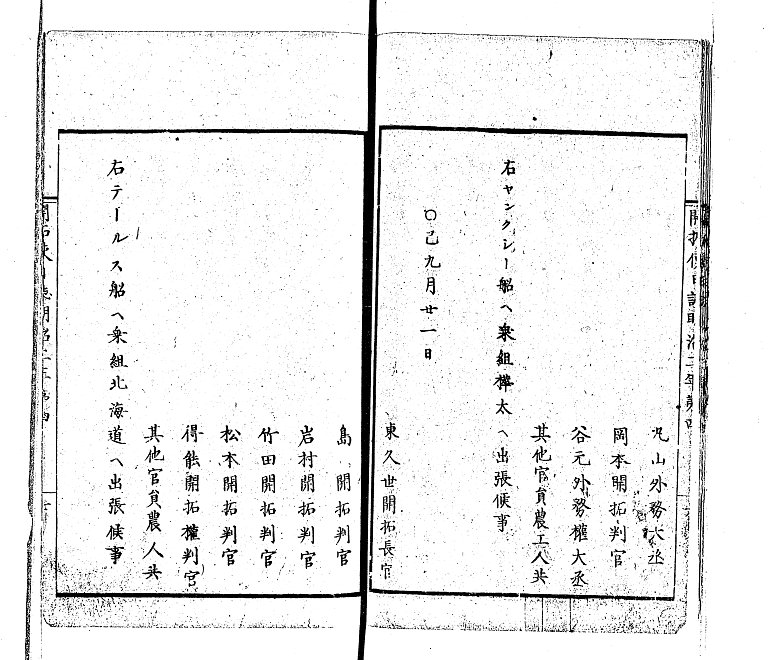 丸山外務大丞
岡本開拓判官
谷元外務權大丞
其他官員農工人共
右ヤンクシー船ヘ乘組樺太ヘ出張候事
〇己九月廿一日
東久世開拓長官
島開拓判官
岩村開拓判官
竹田開拓判官
松本開拓判官
得能開拓權判官
其他官員農人共
右テールス船ヘ乘組北海道ヘ出張候事